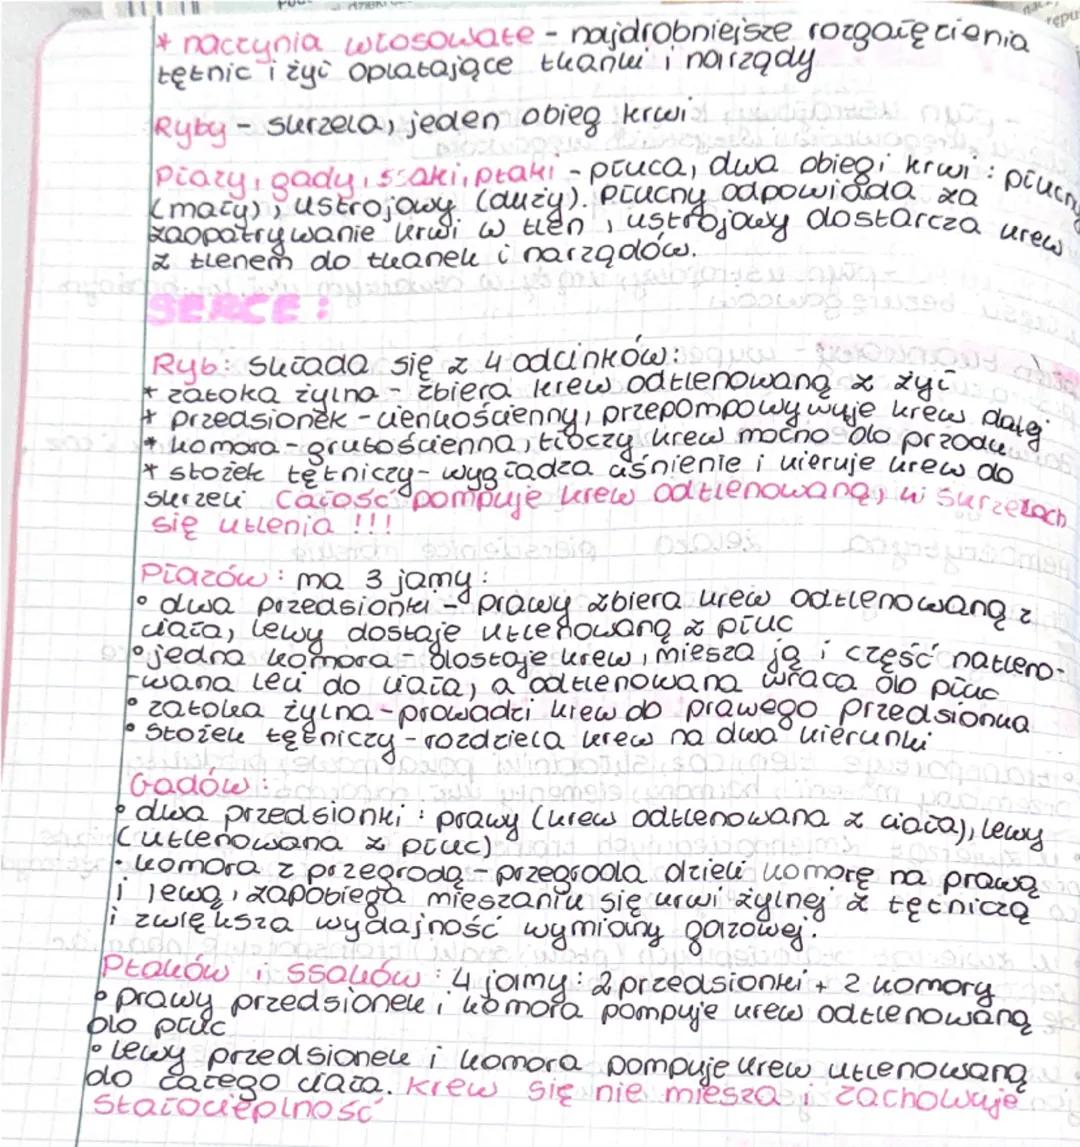 * naczynia włosowate - najdrobniejsze rozgałęzienia
tętnic i żył oplatające tkanki i narządy
Ryby - skrzela, jeden obieg krwi
Płazy, gady, ssaki, ptaki - płuca, dwa obiegi krwi : płucny
(mały), ustrojowy (duży). Płucny odpowiada za
zaopatrywanie krwi w tlen, ustrojowy dostarcza krew
z tlenem do tkanek i narządów.
SERCE :
Ryb: składa się z 4 odcinków:
* zatoka żylna - zbiera krew odtlenowaną z żył
* przedsionek - cienkościenny, przepompowywuje krew dalej
* komora - grubościenna, tłoczy krew mocno do przodu
* stożek tętniczy - wygładza ciśnienie i kieruje krew do
skrzeli Całość pompuje krew odtlenowaną, w skrzelach
się utlenia !!!
Płazów : ma 3 jamy :
• dwa przedsionki - prawy zbiera krew odtlenowaną z
ciała, lewy dostaje utlenowaną z płuc
• jedna komora - dostaje krew, miesza ją i część natleno-
wana leci do ciała, a odtlenowana wraca do płuc
• zatoka żylna - prowadzi krew do prawego przedsionka
• stożek tętniczy - rozdziela krew na dwa kierunki
Gadów :
• dwa przedsionki : prawy (krew odtlenowana z ciała), lewy
(utlenowana z płuc)
• komora z przegrodą - przegroda dzieli komorę na prawą
i lewą, zapobiega mieszaniu się krwi żylnej z tętniczą
i zwiększa wydajność wymiany gazowej.
Ptaków i ssaków : 4 jamy : 2 przedsionki + 2 komory
• prawy przedsionek i komora pompuje krew odtlenowaną
do płuc
• lewy przedsionek i komora pompuje krew utlenowaną
do całego ciała. Krew się nie miesza i zachowuje
stałocieplność